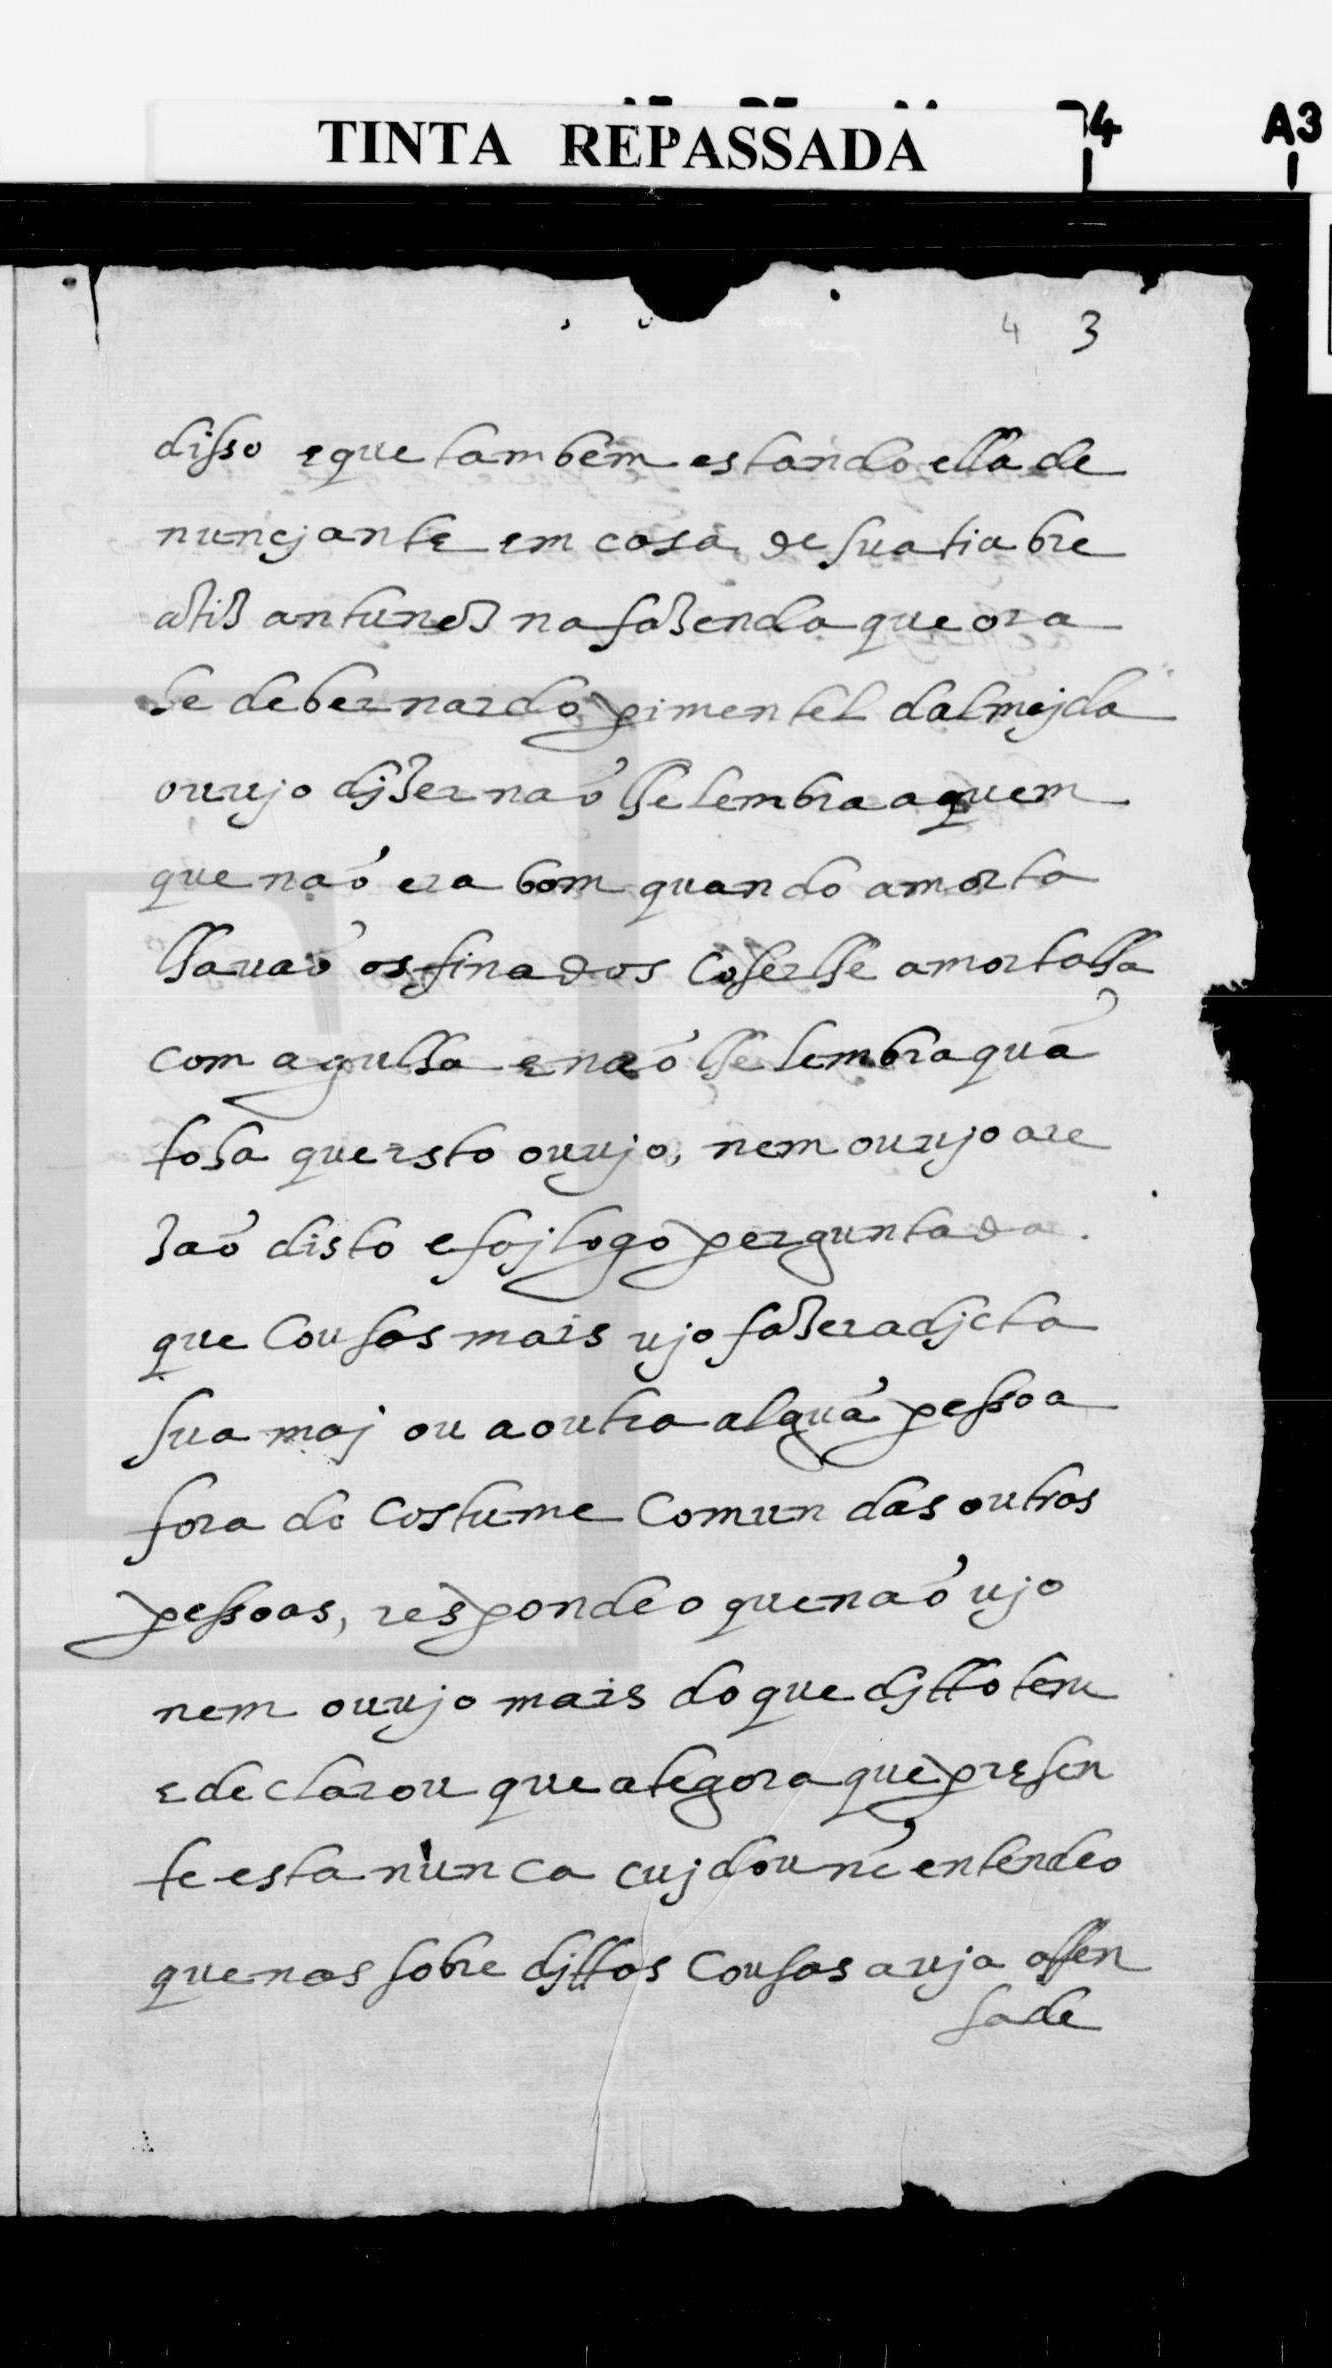 TINTA REPASSADA
74 A3
4 3
disso e que tambem estando ella de
nuncjante em casa de sua tia bre
atiz antunez na fazenda que ora
he de bernardo pimentel dalmejda
ouujo djzer naó lhe lembra a quem
que naó era bom quando amorta
lhauaó os finados coserlhe a mortalha
com agulha e naó lhe lembra quã
to ha que isto ouujo, nem ouujo a re
zaó disto e foj logo perguntada.
que Cousas mais ujo fazer a djcta
sua maj ou a outra alguã pessoa
fora do Costume Comun das outras
pessoas, respondeo que naó ujo
nem ouujo mais do que djtto tem
e declarou que ategora que presen
te esta nunca cujdou nẽ entendeo
que nas sobre djttas Cousas auja offen
sa de